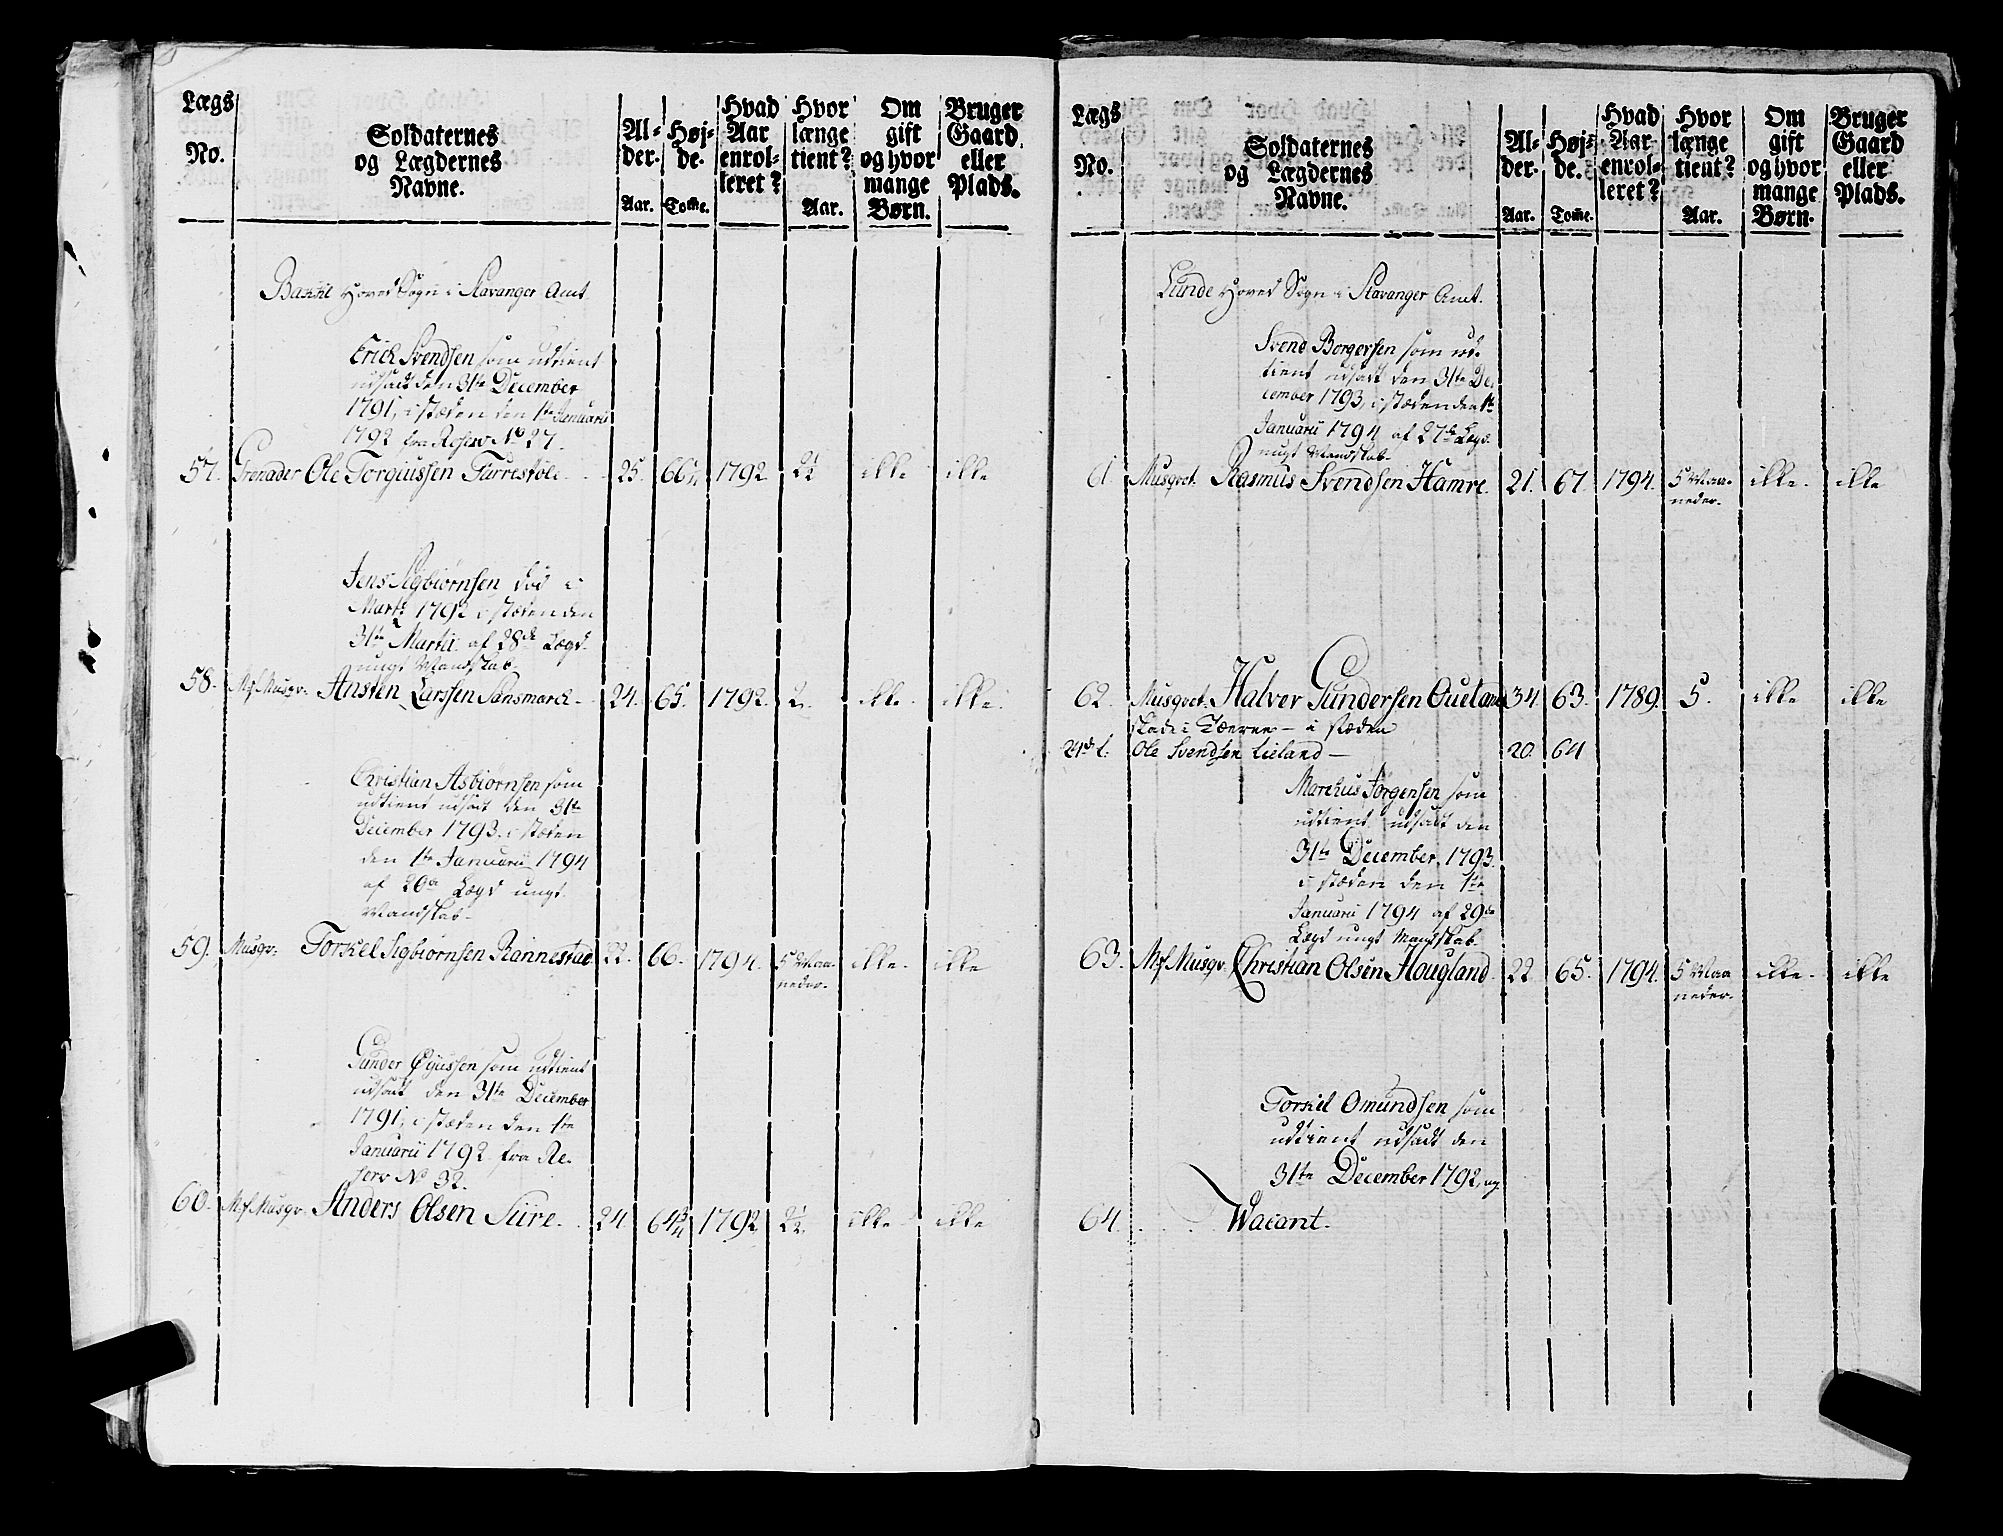 Lægs
No.
Soldaternes
og Lægdernes
Navne.
Al-
der.
Aar.
Høj-
de.
Tom̄e.
Hvad
Aar
enrol-
leret?
Hvor
længe
tient?
Aar.
Om
gift
og hvor
mange
Børn.
Bruger
Gaard
eller
Plads.
Hoved Sogn i Stavanger Amt
Erich Svendsen som udtient
udsadt den 31te December
1791, i stæden den 1te Januarii
1792 fra Reserv No 27.
57. Grenader Ole Torgiussen Turrestøl 25. 66½ 1792 2½ ikke ikke
Jens Sigbiørnsen död i
Marti 1792 i stæden den
31te Martii af 28de Lægd
ungt Mandskab.
58. Mf Musqv: Ansten Larssen Sansmarck 24. 65. 1792. 2. ikke ikke.
Christian Asbiørnsen som
udtient udsadt den 31te
December 1793. i stæden
den 1te Januarii 1794
af 20de Lægd ungt
Mandskab.
59. Musqv: Torkel Sigbiørnsen Rannestad 22. 66. 1794. 5 Maa- ikke. ikke
neder.
Gunder Øyussen som udtient
udsadt den 31te December
1791, i stæden den 1te
Januarii 1792 fra Re-
serv No 32.
60. Mf Musqv. Anders Olsen Siire. 24 64¾ 1792 2½ ikke ikke
Lægs
No.
Soldaternes
og Lægdernes
Navne.
Al-
der.
Aar.
Høj-
de.
Tom̄e.
Hvad
Aar
enrol-
leret?
Hvor
længe
tient?
Aar.
Om
gift
og hvor
mange
Børn.
Bruger
Gaard
eller
Plads.
Lunde Hoved Sogn i Stavanger Amt.
Svend Borgersen som ud-
tient udsadt den 31te De-
cember 1793, i stæden den 1te
Januarii 1794 af 27de Lægd
ungt Mandskab.
61. Musqvt. Rasmus Svendsen Hamre. 21. 67. 1794. 5 Maa- ikke. ikke
neder.
62. Musqvet. Halver Gundersen Oueland 34. 63. 1789. 5. ikke ikke
i stæden
24de L: Ole Svendsen Lieland — 20. 64
Marckus Jörgensen som
udtient udsadt den
31te December, 1793.
i stæden den 1te
Januarii 1794 af 29de
Lægd ungt Mandskab.
63. Mf Musqv. Christian Olsen Hougland. 22 65. 1794. 5 Maa ikke. ikke
neder.
Torkel Omundsen som
udtient udsadt den
31te December 1792, og
64. Wacant.